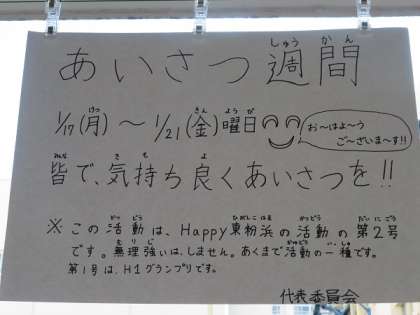 あいさつ週間
1/17(月)~1/21(金)曜日
お〜はよ〜う
ご〜ざいま〜す!!
皆で、気持ち良くあいさつを!!
※この活動は、Happy東粉浜の活動の第2号
です。無理強いは、しません。あくまで活動の一種です。
第1号は、H1グランプリです。
代表委員会